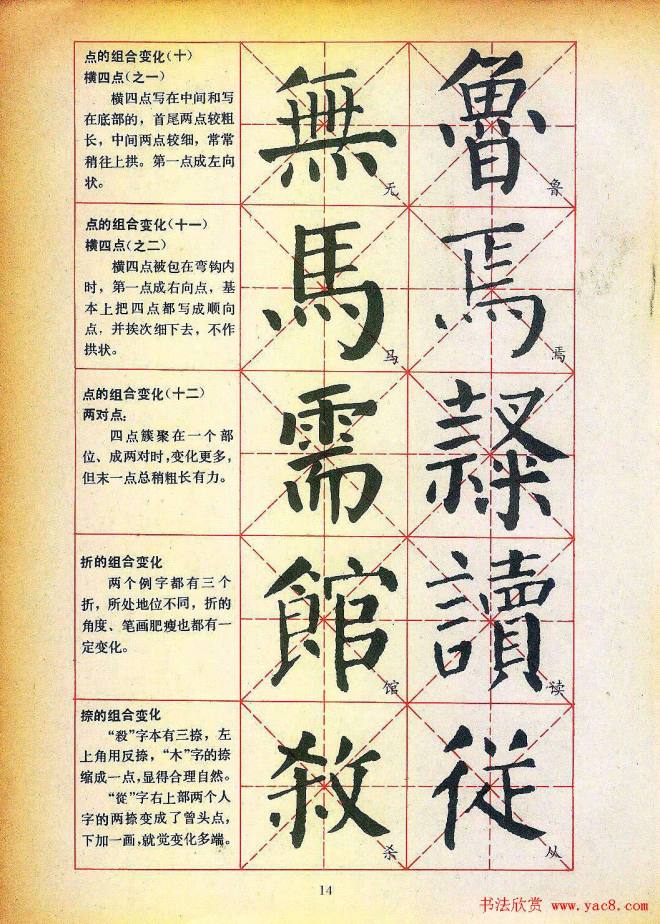 点的组合变化(十)
横四点(之一)
横四点写在中间和写
在底部的，首尾两点较粗
长，中间两点较细，常常
稍往上拱。第一点成左向
状。
無
无
魯
鲁
点的组合变化(十一)
横四点(之二)
横四点被包在弯钩内
时，第一点成右向点，基
本上把四点都写成顺向
点，并挨次细下去，不作
拱状。
馬
马
焉
焉
点的组合变化(十二)
两对点：
四点簇聚在一个部
位、成两对时，变化更多，
但末一点总稍粗长有力。
需
折的组合变化
两个例字都有三个
折，所处地位不同，折的
角度、笔画肥瘦也都有一
定变化。
館
馆
讀
读
捺的组合变化
“殺”字本有三捺，左
上角用反捺，“木”字的捺
缩成一点，显得合理自然。
“從”字右上部两个人
字的两捺变成了曾头点，
下加一画，就觉变化多端。
殺
杀
從
从
14
书法欣赏 www.yac8.com